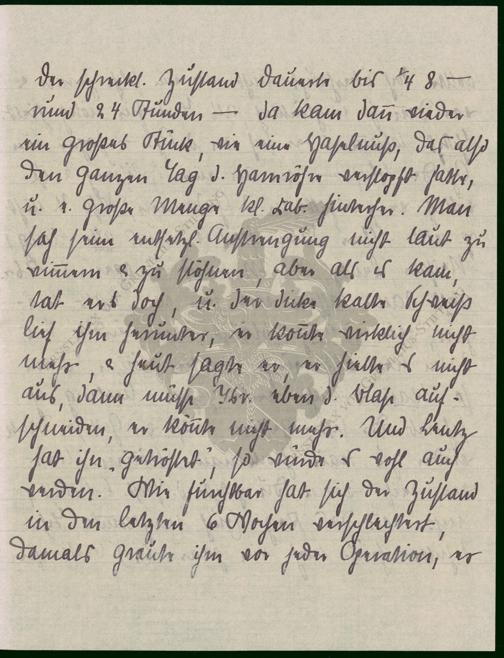 Der schreckl. Zustand dauerte bis 1/4 8 —
rund 24 Stunden — da kam dañ wieder
ein großes Stück, wie eine Haselnuß, das also
den ganzen Tag d. Harnröhre verstopft hatte,
u. e. große Menge kl. hinterher. Man
sah seine entsetzl. Anstrengung nicht laut zu
wimmern & zu stöhnen, aber als es kam,
tat ers doch, u. der dicke kalte Schweiß
lief ihm herunter, er koñte wirklich nicht
mehr, & heut sagte er, er hielte es nicht
aus, dann müsse eben d. Blase auf-
schneiden, er köñte nicht mehr. Und Lentz
hat ihn „getröstet", so würde es wohl auch
werden. Wie furchtbar hat sich der Zustand
in den letzten 6 Wochen verschlechtert,
damals graute ihm vor jeder Operation, er